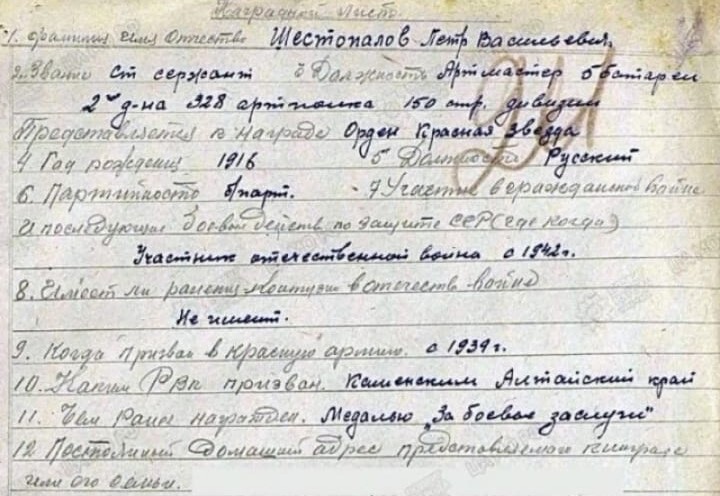 Наградной Лист
1. фамилия имя Отчество Шестопалов Петр Васильевич
2. Звание Ст сержант 3 Должность Артмастер 6 батареи
2го д-на 328 артполка 150 стр. дивизии
Представляется к награде Орден Красная Звезда
4 Год рождения 1916 5 Должность Русский
6. Партийность б/парт. 7 Участие в гражданской войне
и последующие боевых действ по защите ССР (где когда)
Участник отечественной война с 1942 г.
8. Имеет ли ранения контузии в отечеств войне
Не имеет.
9. Когда призван в красную армию. с 1939 г.
10. Каким Рвк призван. Каменским Алтайский край
11. Чем ранее награжден. Медалью „За боевые заслуги"
12 Постоянный Домашний адрес представляемого к награде
или его семьи.